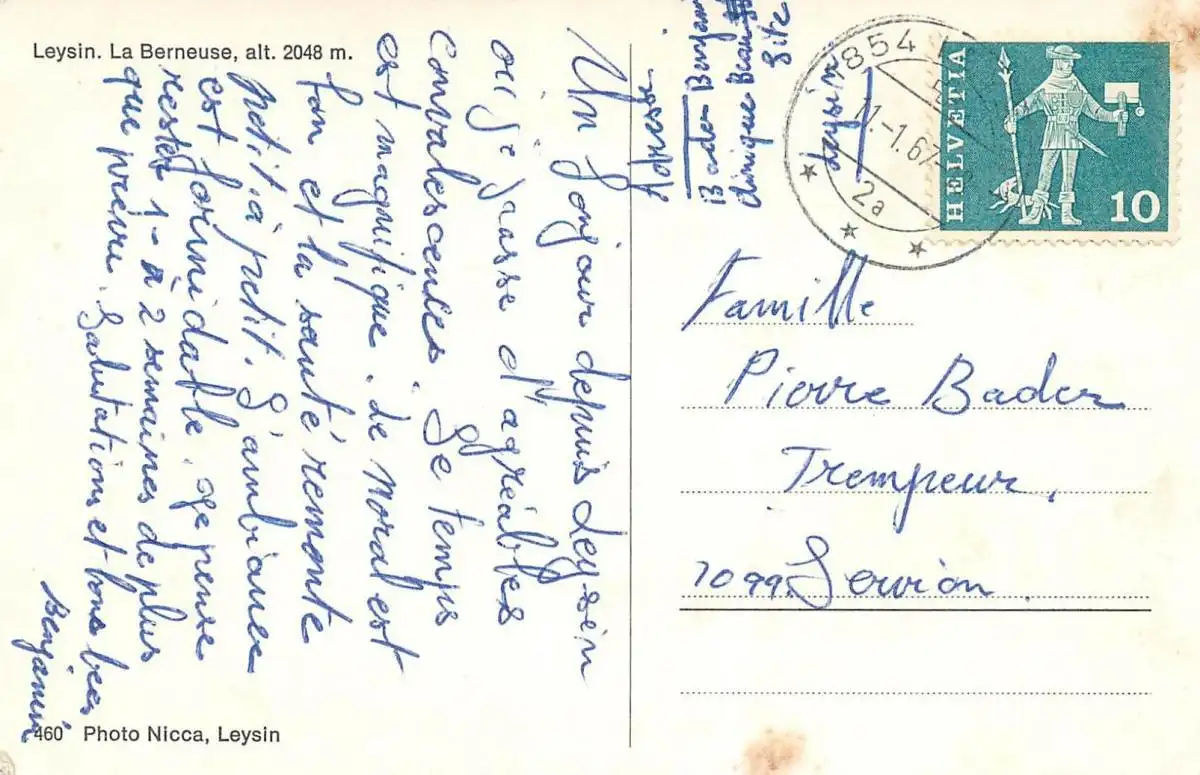 Leysin. La Berneuse, alt. 2048 m.
Un bonjour depuis Leysin
où je passe d'agréables
convalescences. Le temps
est magnifique. Le moral est
bon et la santé remonte
petit à petit. L'ambiance
est formidable. Je pense
rester 1 - à 2 semaines de plus
que prévu. Salutations et bons becs
Benjamin
460 Photo Nicca, Leysin
Adresse
Bader Benjamin
Clinique Beau
Site
Leysin
1854
11.-1.67
2a
HELVETIA
10
Famille
Pierre Bader
Trempeur,
1099 Servion.